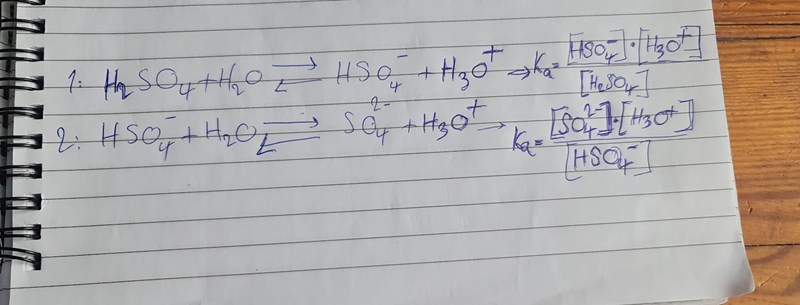 1: H₂SO₄ + H₂O ⇌ HSO₄⁻ + H₃O⁺ → Ka = [HSO₄⁻]·[H₃O⁺] / [H₂SO₄]
2: HSO₄⁻ + H₂O ⇌ SO₄²⁻ + H₃O⁺ → Ka = [SO₄²⁻]·[H₃O⁺] / [HSO₄⁻]